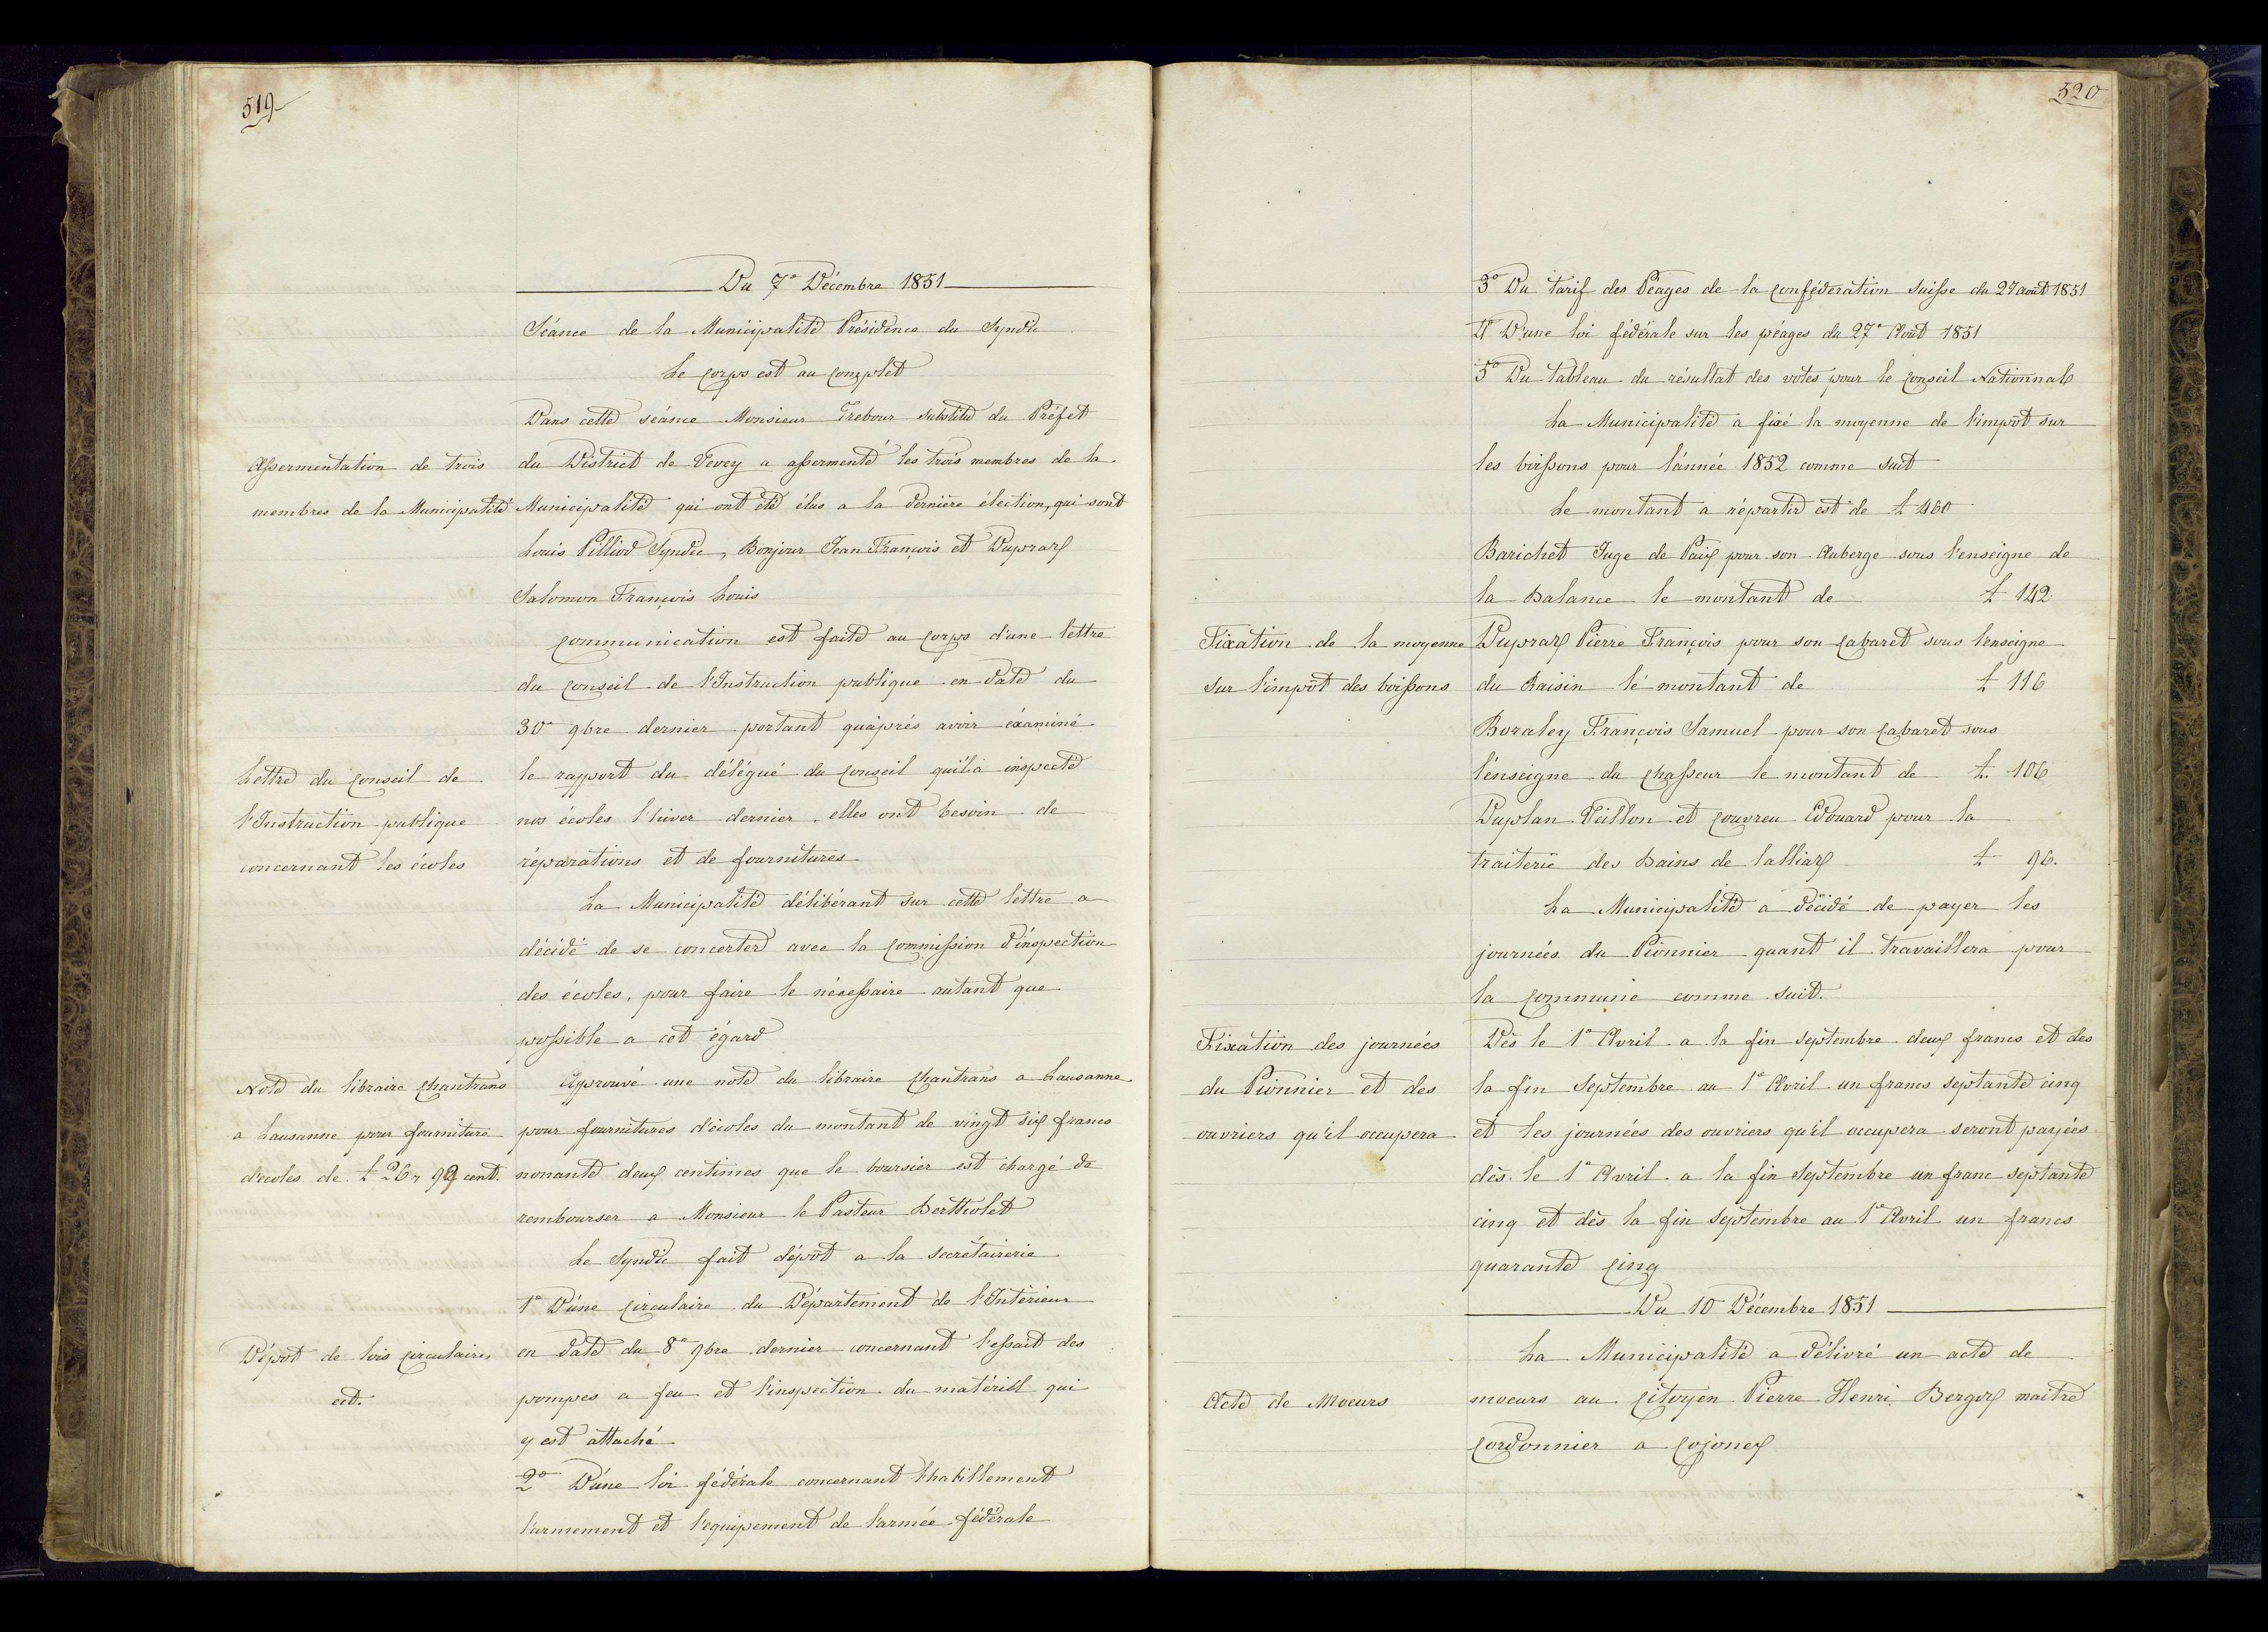 519
Du 7e Décembre 1851
Séance de la Municipalité Présidence du Syndic
Le Corps est au Complet
Dans cette séance Monsieur Trebour substitut du Préfet
Assermentation de trois
du District de Vevey a assermenté les trois membres de la
membres de la Municipalité
Municipalité qui ont été élus a la dernière élection, qui sont
Louis Pilliod Syndic, Bonjour Jean François et Dupraz
Salomon François Louis
Communication est faite au Corps d'une lettre
du Conseil de l'Instruction publique en date du
30e 9bre dernier portant qu'après avoir éxaminé
Lettre du Conseil de
le rapport du délégué du Conseil qui là inspecté
l'Instruction publique
nos écoles l'hiver dernier. elles ont besoin de
concernant les écoles
réparations et de fournitures
La Municipalité délibérant sur cette lettre a
décidé de se concerter avec la Commission d'inspection
des écoles, pour faire le nécessaire autant que
possible a cet égard
Note du libraire Chantrans
Approuvé une note du libraire Chantrans a Lausanne
a Lausanne pour fourniture
pour fournitures d'écoles du montant de vingt six francs
d'écoles de £ 26, 92 cent.
nonante deux centimes que le boursier est chargé de
rembourser a Monsieur le Pasteur Bertholet
Le Syndic fait dépôt a la secrétairerie
1e D'une Circulaire du Département de l'Intérieur
Dépot de lois Circulaires
en date du 8e 9bre dernier concernant l'essait des
ect.
pompes a feu et l'inspection du matériel qui
y est attaché
2o D'une loi fédérale concernant l'habillement
l'armement et l'equipement de l'armée fédérale
520
3o Du tarif des Péages de la Conféderation Suisse du 27 août 1851
4o D'une loi fédérale sur les péages du 27e Août 1851
5o Du Tableau du résultat des votes pour le Conseil Nationnal
La Municipalité a fixé la moyenne de l'impôt sur
les boissons pour l'année 1852 comme suit
Le montant a répartir est de £ 460
Barichet Juge de Paix pour son Auberge sous l'enseigne de
la Balance le montant de £ 142
Fixation de la moyenne
Dupraz Pierre François pour son Cabaret sous l'enseigne
sur l'impôt des boissons
du Raisin le montant de £ 116
Boraley François Samuel pour son Cabaret sous
l'énseigne du Chasseur le montant de £. 106
Duplan Veillon et Couvreu Edouard pour la
traiterie des Bains de lalliaz £ 96.
La Municipalité a décidé de payer les
journées du Pionnier quant il travaillera pour
la Commune comme suit.
Fixation des journées
Dès le 1e Avril a la fin septembre deux francs et des
du Pionnier et des
la fin Septembre au 1e Avril un francs septante cinq
ouvriers qu'il occupera
et les journées des ouvriers qu'il occupera seront payées
dès le 1e Avril a la fin Septembre un franc septante
cinq et dès la fin Septembre au 1e Avril un francs
quarante Cinq
Du 10 Décembre 1851
La Municipalité a délivré un acte de
Acte de Moeurs
moeurs au Citoyen Pierre Henri Berger maitre
Cordonnier a Cojonex